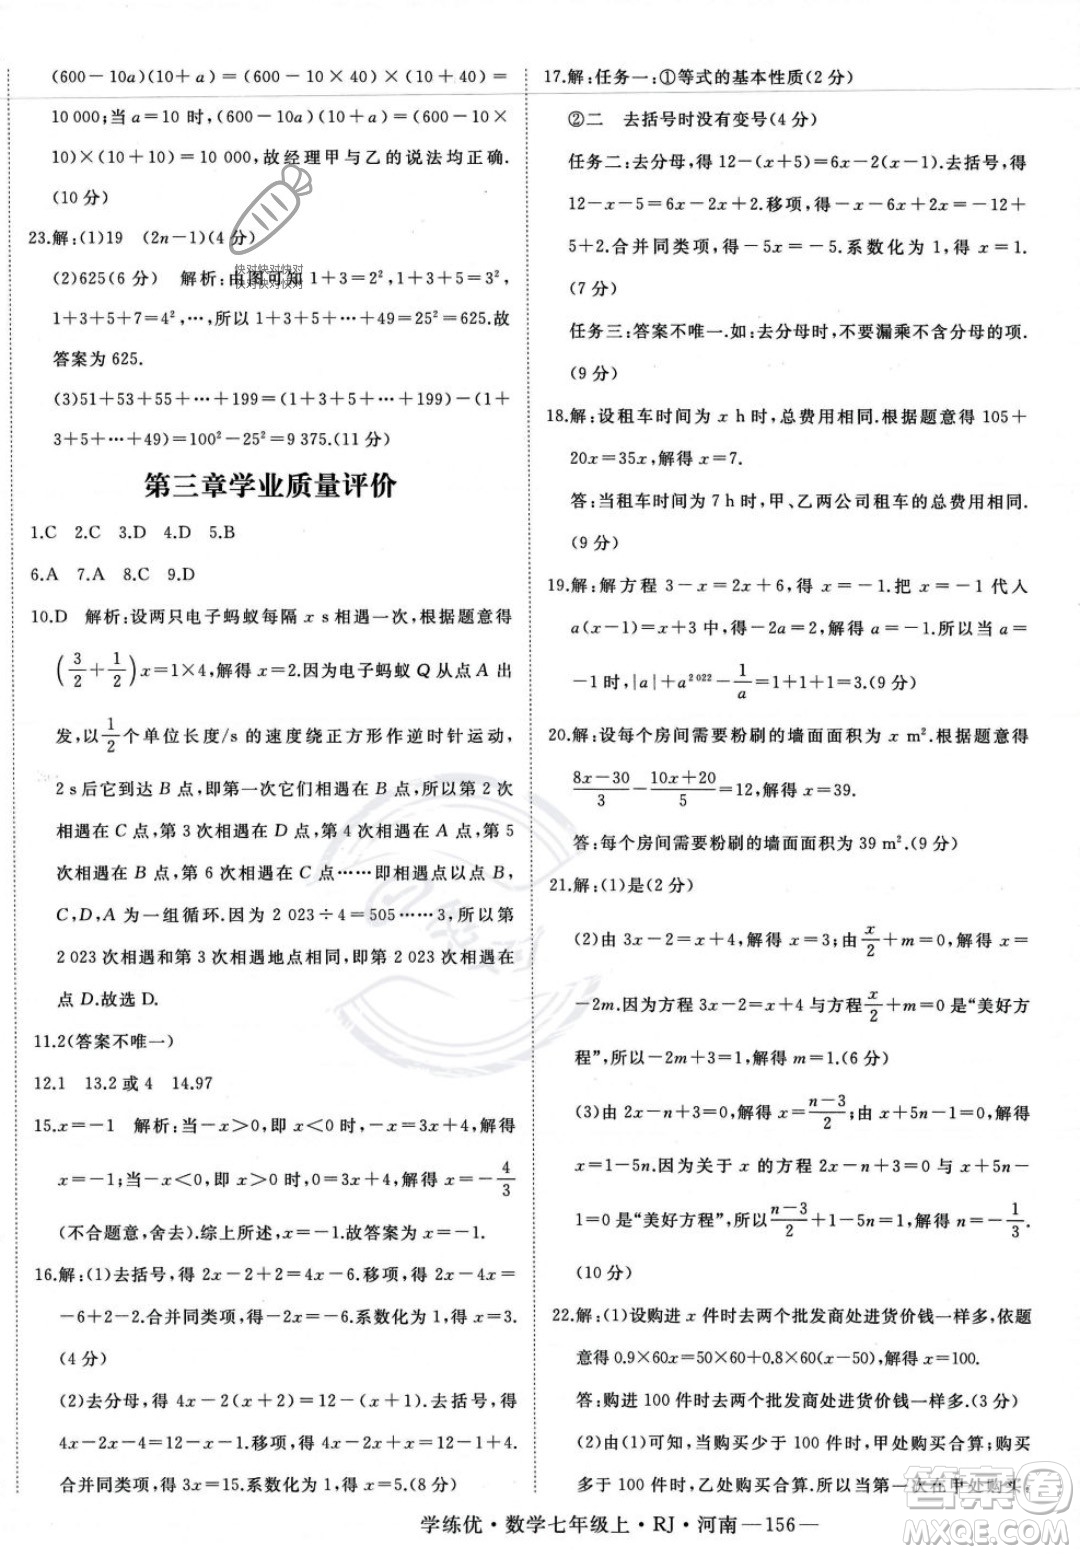 (600－10a)(10＋a)＝(600－10×40)×(10＋40)＝
10 000;当 a＝10 时,(600－10a)(10＋a)＝(600－10×
10)×(10＋10)＝10 000,故经理甲与乙的说法均正确.
(10 分)
23.解:(1)19 (2n－1)(4 分)
(2)625(6 分) 解析:由图可知 1＋3＝2²,1＋3＋5＝3²,
1＋3＋5＋7＝4²,…,所以 1＋3＋5＋…＋49＝25²＝625.故
答案为 625.
(3)51＋53＋55＋…＋199＝(1＋3＋5＋…＋199)－(1＋
3＋5＋…＋49)＝100²－25²＝9 375.(11 分)
第三章学业质量评价
1.C 2.C 3.D 4.D 5.B
6.A 7.A 8.C 9.D
10.D 解析:设两只电子蚂蚁每隔 x s相遇一次,根据题意得
(3/2＋1/2)x＝1×4,解得 x＝2.因为电子蚂蚁 Q 从点 A 出
发,以1/2个单位长度/s的速度绕正方形作逆时针运动,
2 s后它到达 B 点,即第 1 次相遇在 B 点,所以第 2 次
相遇在 C 点,第 3 次相遇在 D 点,第 4 次相遇在 A 点,第 5
次相遇在 B 点,第 6 次相遇在 C 点……即相遇点以点 B,
C,D,A 为一组循环.因为 2 023÷4＝505……3,所以第
2 023 次相遇和第 3 次相遇地点相同,即第 2 023 次相遇在
点 D.故选 D.
11.2(答案不唯一)
12.1 13.2 或 4 14.97
15.x＝－1 解析:当－x＞0,即 x＜0 时,－x＝3x＋4,解得
x＝－1;当－x＜0,即 x＞0 时,0＝3x＋4,解得 x＝－4/3
(不合题意,舍去).综上所述,x＝－1.故答案为 x＝－1.
16.解:(1)去括号,得 2x－2＋2＝4x－6.移项,得 2x－4x＝
－6＋2－2.合并同类项,得－2x＝－6.系数化为 1,得 x＝3.
(4 分)
(2)去分母,得 4x－2(x＋2)＝12－(x＋1).去括号,得
4x－2x－4＝12－x－1.移项,得 4x－2x＋x＝12－1＋4.
合并同类项,得 3x＝15.系数化为 1,得 x＝5.(8 分)
17.解:任务一:①等式的基本性质(2 分)
②二 去括号时没有变号(4 分)
任务二:去分母,得 12－(x＋5)＝6x－2(x－1).去括号,得
12－x－5＝6x－2x＋2.移项,得－x－6x＋2x＝2－12＋
5.合并同类项,得－5x＝－5.系数化为 1,得 x＝1.
(7 分)
任务三:答案不唯一.如:去分母时,不要漏乘不含分母的项.
(9 分)
18.解:设租车时间为 x h时,总费用相同.根据题意得 105＋
20x＝35x,解得 x＝7.
答:当租车时间为 7 h时,甲、乙两公司租车的总费用相同.
(9 分)
19.解:解方程 3－x＝2x＋6,得 x＝－1.把 x＝－1 代人
a(x－1)＝x＋3 中,得－2a＝2,解得 a＝－1.所以当 a＝
－1时,|a|＋a²⁰²²－1/a＝1＋1＋1＝3.(9 分)
20.解:设每个房间需要粉刷的墙面面积为 x m².根据题意得
(8x－30)/3－(10x＋20)/5＝12,解得 x＝39.
答:每个房间需要粉刷的墙面面积为 39 m².(9 分)
21.解:(1)是(2 分)
(2)由 3x－2＝x＋4,解得 x＝3;由x/2＋m＝0,解得 x＝
－2m.因为方程 3x－2＝x＋4 与方程x/2＋m＝0 是“美好方
程”,所以－2m＋3＝1,解得 m＝1.(6 分)
(3)由 2x－n＋3＝0,解得 x＝(n－3)/2;由 x＋5n－1＝0,解得
x＝1－5n.因为关于 x 的方程 2x－n＋3＝0 与 x＋5n－
1＝0 是“美好方程”,所以(n－3)/2＋1－5n＝1,解得 n＝－1/3.
(10 分)
22.解:(1)设购进 x 件时去两个批发商处进货价钱一样多,依题
意得 0.9×60x＝50×60＋0.8×60(x－50),解得 x＝100.
答:购进 100 件时去两个批发商处进货价钱一样多.(3 分)
(2)由(1)可知,当购买少于 100 件时,甲处购买合算;购买
多于 100 件时,乙处购买合算.所以当第一次在甲处购买,
学练优·数学七年级上·RJ·河南—156—
快对快对快对
快对快对快对
答案圈